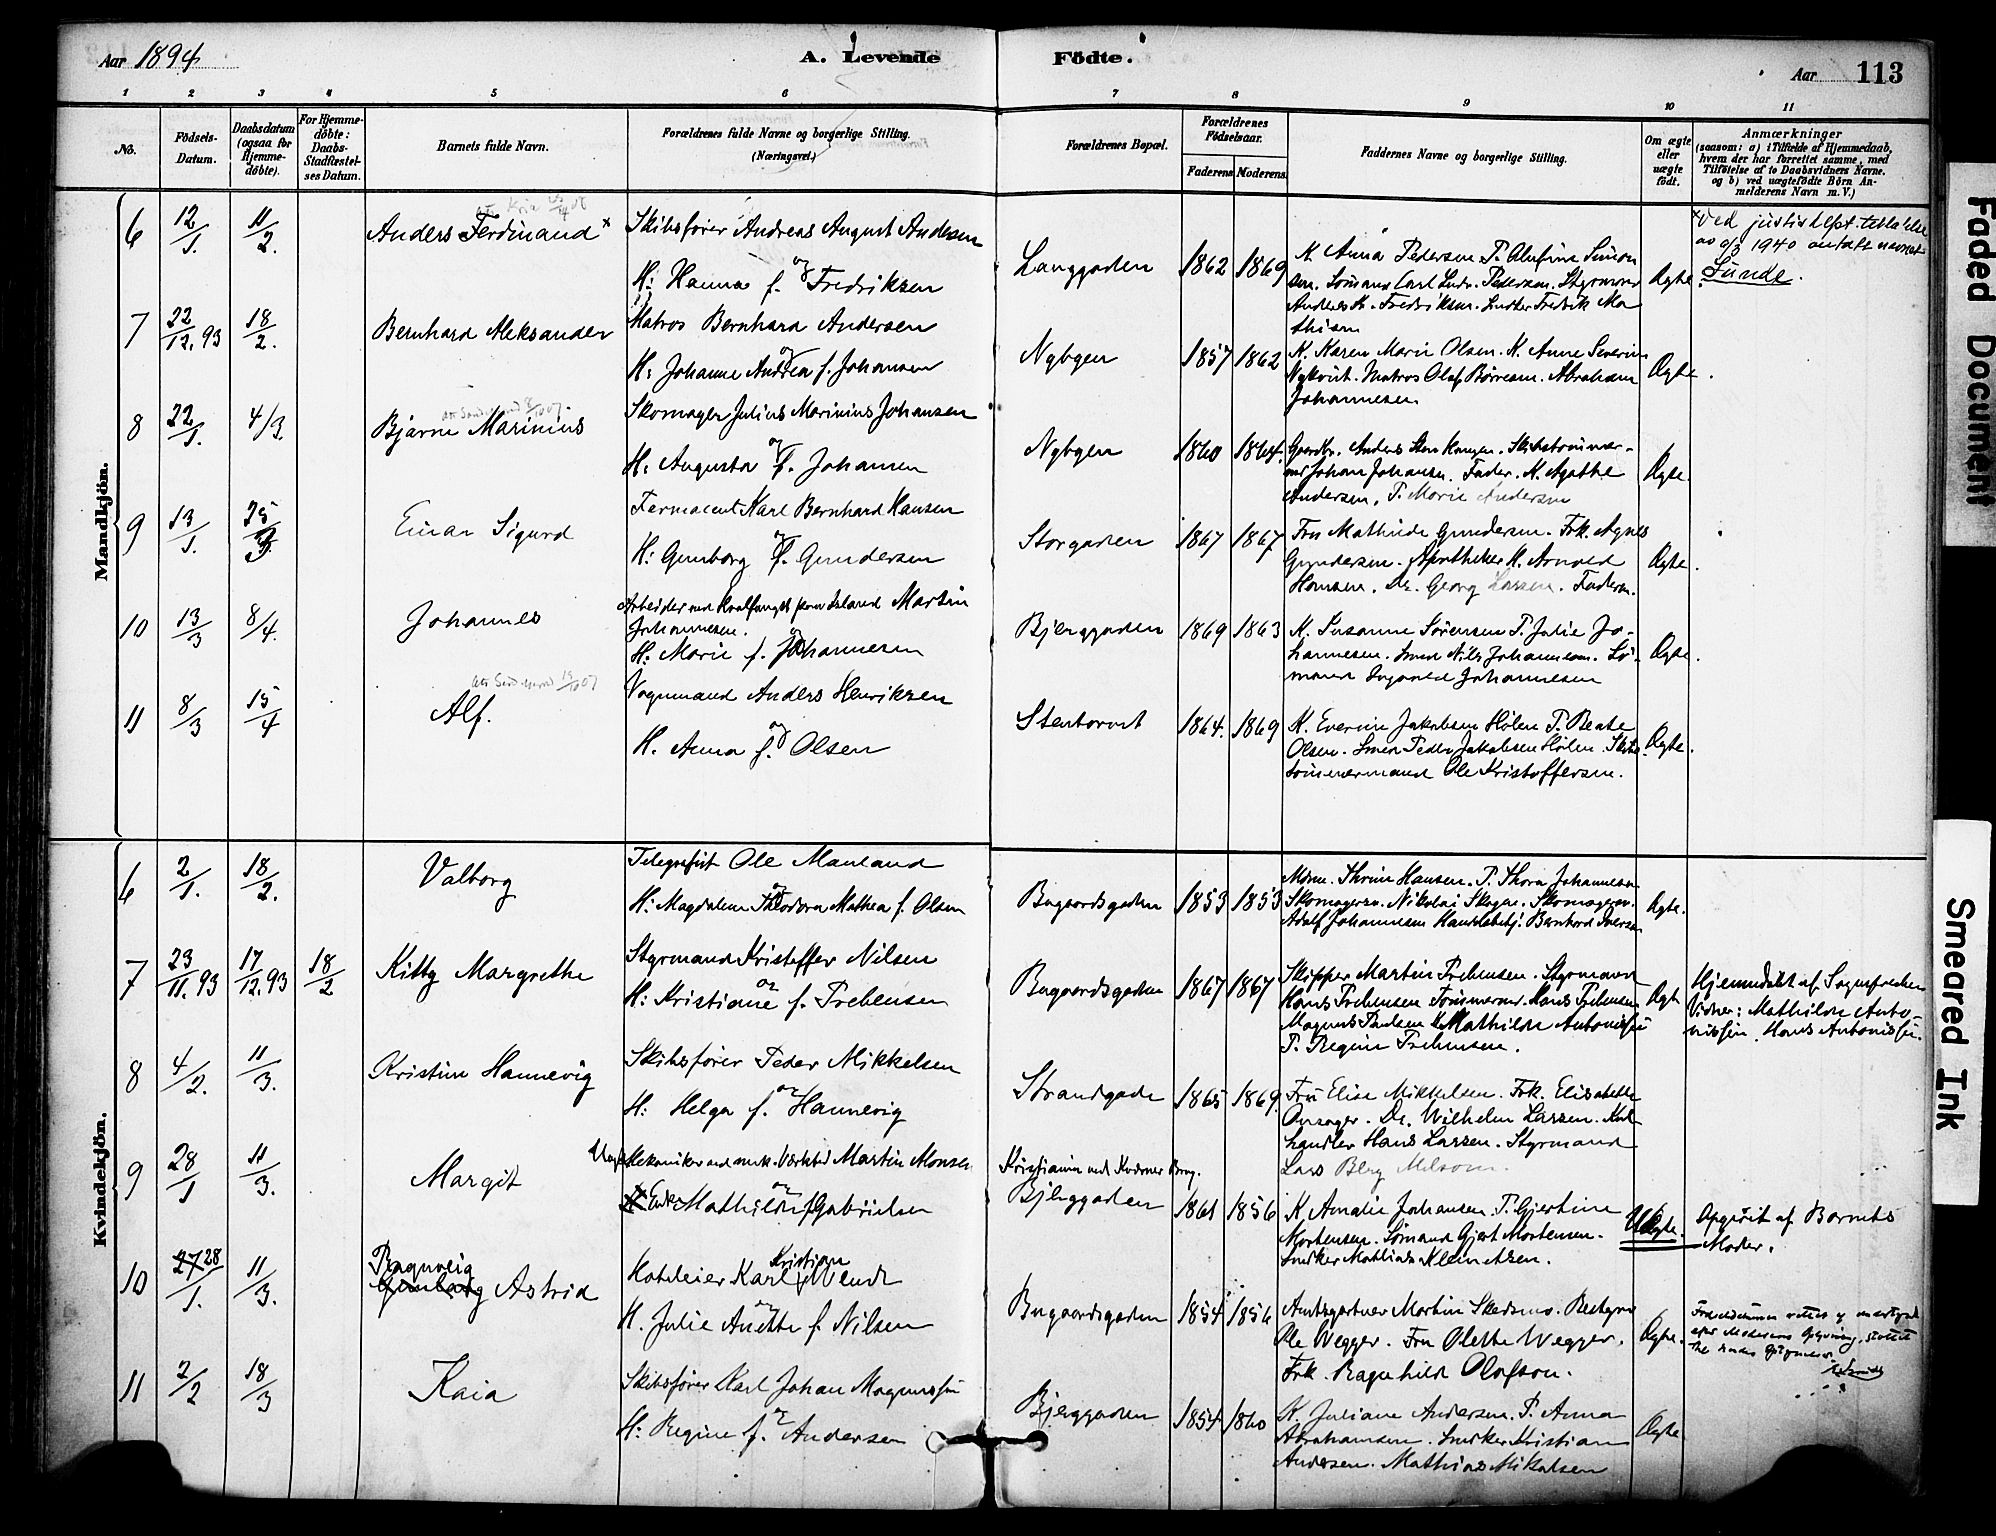 Aar 1894
A. Levende
Födte.
Aar 113
1 2 3 4 5 6 7 8 9 10 11
No.
Födsels-Datum.
Daabsdatum (ogsaa for Hjemme-döbte).
For Hjemme-döbte: Daabs-Stadfæstel-ses Datum.
Barnets fulde Navn.
Forældrenes fulde Navne og borgerlige Stilling.
(Næringsvei.)
Forældrenes Bopæl.
Forældrenes Födselsaar.
Faderens Moderens
Faddernes Navne og borgerlige Stilling.
Om ægte eller uægte födt.
Anmærkninger
(saasom: a) i Tilfælde af Hjemmedaab,
hvem der har forrettet samme, med
Tilföielse af to Daabsvidners Navne.
og b) ved uægtefödte Börn An-
melderens Navn m. V.)
Mandkjön.
6 12/1. 11/2. Anders Ferdinand x
Skibsfører Andreas August Andersen
og
H: Hanna f. Fredriksen
Langgaden 1862 1869
K. Anna Pedersen P. Olufine Simon
sen. Sømand Carl Ludv. Pedersen. Styrmand
Andreas Fredriksen. Snedker Fredrik Ma
thisen
Ægte.
x Ved justisdept. tilladelse
av 1940 antatt navnet
Sunde.
7 22/12.93 18/2. Bernhard Aleksander
Matros Bernhard Andersen
og
H: Johanne Andrea f. Johansen
Nybyen 1857 1862
K. Karen Marie Olsen. K. Anne Severin
Nykvist. Matros Olaf Børresen. Abraham
Johannesen
Ægte.
8 22/1. 4/3. Bjarne Marinius
Skomager Julius Marinius Johansen
og
H: Augusta f. Johansen
Nybyen 1860 1864.
Anders Stenhaugen. Skibstømmer-
md Johan Johansen. Fader. K. Agathe
Andersen. P. Marie Andersen
Ægte.
9 13/1. 25/3 Einar Sigurd
Farmaceut Karl Bernhard Hansen
og
H: Gunborg f. Gundersen
Storgaden 1867 1867
Fru Mathilde Gundersen. Frk. Agnes
Gundersen. Apotheker H. Arnold
Hansen. Dr. Georg Larsen. Faderen.
Ægte.
10 13/3 8/4. Johannes
Arbeider ved Hvalfangst paa Island Martin
Johannesen.
og
H: Marie f. Johannesen
Bjerggaden 1869 1863
K. Susanne Sørensen P. Julie Jo-
hannesen. Smed Nils Johannesen. Sø-
mand Ingvald Johannesen
Ægte.
11 8/3 15/4 Alf.
Vognmand Anders Henriksen
og
H. Anna f. Olsen
Stentorvet 1864. 1869
K. Everine Jakobsen Holen P. Beate
Olsen. Smed Peder Jakobsen Holen. Skibs
tømmermand Ole Kristoffersen.
Ægte.
Kvindekjön.
6 2/1. 18/2. Valborg
Telegrafist Ole Manland
og
H: Magdalene Theodora Mathea f. Olsen
Bugaardsgaden 1853 1853
Thrine Hansen. P. Thora Johannesen
Skomagersv. Nikolai Skogen. Skomagersv.
Adolf Johannesen Handelsbetj. Bernhard Iversen
Ægte.
7 23/11.93 17/12.93 18/2 Kitty Margrethe
Styrmand Kristoffer Nilsen
og
H: Kristiane f. Trebensen
Bugaardsgaden 1867 1867
Skipper Martin Trebensen. Styrmand
Hans Trebensen Tømmermd. Hans Trebensen
Magnus Paulsen K. Mathilde Antonissen
P. Regine Trebensen.
Ægte
Hjemmedøbt af Sognepresten
Vidner: Mathilde Anto-
nissen. Hans Antonissen.
8 4/2. 11/3. Kristine Hannevig
Skibsfører Peder Mikkelsen
og
H: Helga f. Hannevig
Strandgade 1865 1869.
Fru Elise Mikkelsen. Frk. Elisabeth
Onsager. Dr. Wilhelm Larsen. Kul
handler Hans Larsen. Styrmand
Lars Berg Melsom.
9 28/1 11/3. Margit
Ungk. Mekaniker ved mek. Værksted Martin Monsen
og
Enke Mathilde f. Gabrielsen
Kristiania ved Kværner Brug.
Bjerggaden 1861 1856
K Amalie Johansen. P. Gjertine
Mortensen. Sømand Gjert Mortensen.
Snedker Mathias Kleinetzen.
Uægte.
Opgivet af Barnets
Moder.
10 27 28/1. 11/3. Ragnveig
Gunborg Astrid
Hotelleier Karl Kristian Wendt
og
H. Julie Anette f. Nilsen
Bugaardsgaden 1854 1856
Amtsgartner Martin Skedsmo. Bestyrer
Ole Wegger. Fru Olette Wegger.
Frk. Ragnhild Olafson.
Ægte.
11 2/2 18/3 Kaia
Skibsfører Karl Johan Magnussen
og
H: Regine f. Andersen
Bjerggaden 1854 1860
K. Juliane Andersen. P. Anna
Abrahamsen. Snedker Kristian
Andersen. Mathias Mikalsen
Ægte
Faded Document
Smeared Ink